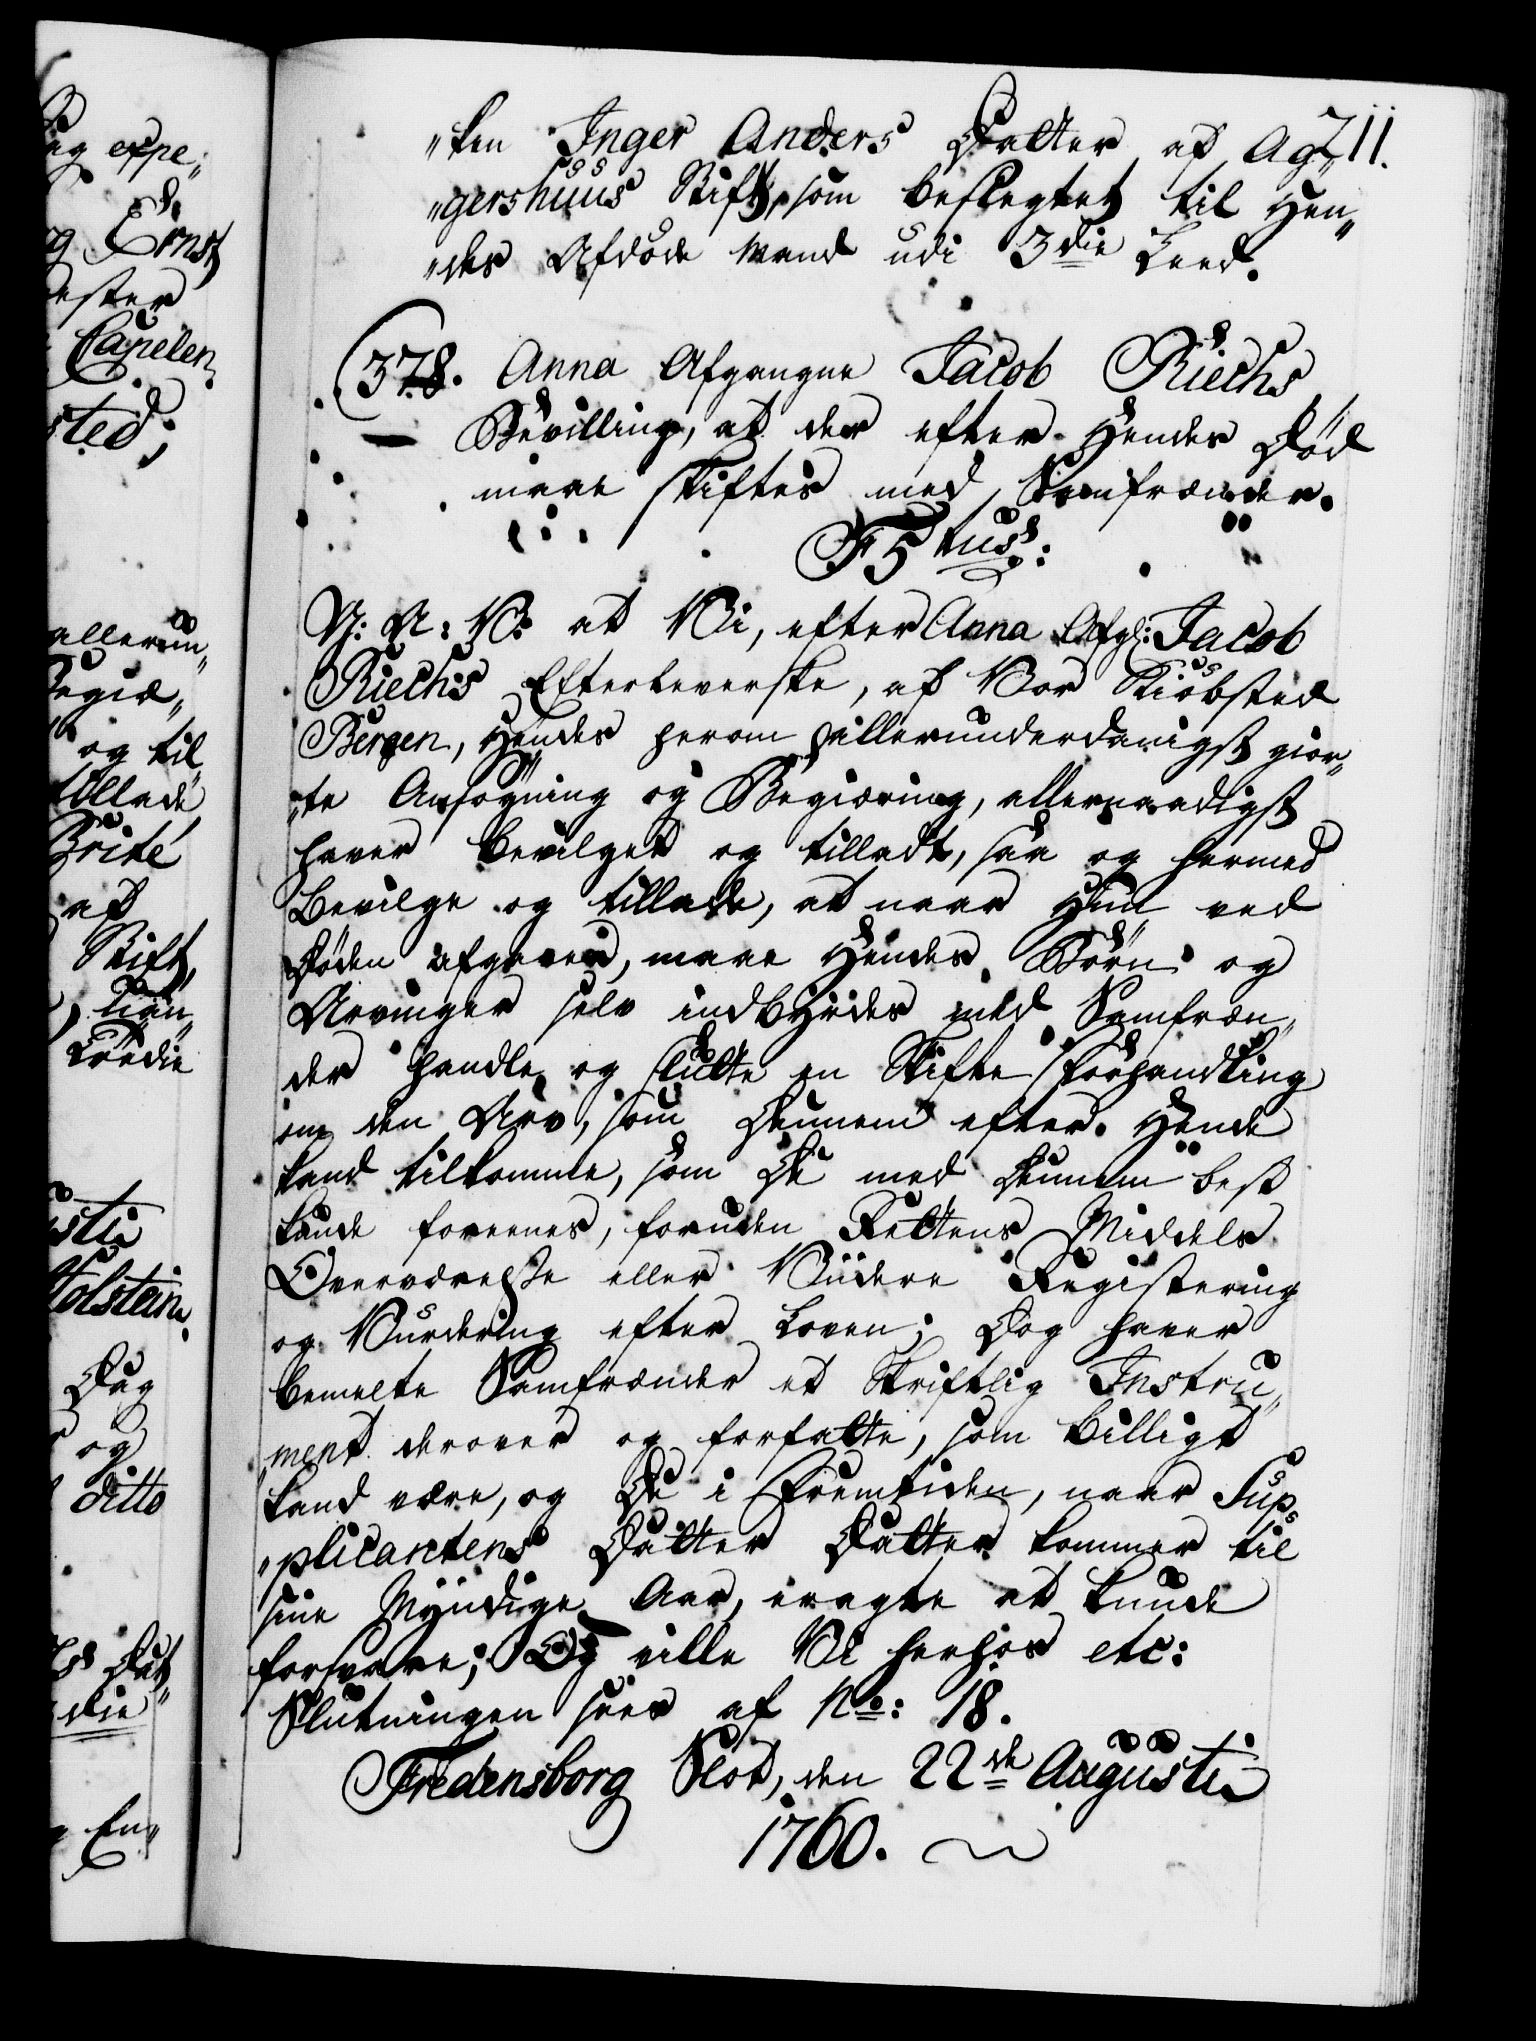 711.
"ken Inger Anders Datter af Ag,
"gershuus Stift, som beslegtet til Hen"
"des Afdøde Mand udi 3die Leed.
378. Anna Afgangne Jacob Riechs
Bevilling, at der efter Hendes Død
maae skiftes med Samfrænder.
F 5
V: G: V: at Vi, efter Anna Afg: Jacob
Riechs Efterleverske, af Vor Kiøbsted
Bergen, Hendes herom allerunderdanigst gior"
"te Ansøgning og Begiæring, allernaadigst
haver bevilget og tilladt, saa og hermed
bevilge og tillade, at naar Hun ved
Døden afgaaer, maae Hendes Børn og
Arvinger selv indbyrdes med Samfræn"
der handle og slutte en Skifte Forhandling
om den Arv, som Dennem efter Hende
kand tilkomme, som De med Dennem best
kunde foreenes, foruden Rettens Middels
Overværelse eller Viidere Registering
og Vurdering efter Loven; Dog haver
bemelte Samfrænder et Skriftlig Instru"
"ment derover og forfatte, som billigt
kand være, og De i Fremtiden, naar Sup"
"plicantens Datter Datter kommer til
sine Myndige Aar, eragte at kunde
forsvare; Og ville Vi herhos etc:
Slutningen sees af No: 18.
Fredensborg Slot, den 22de Augusti
1760.